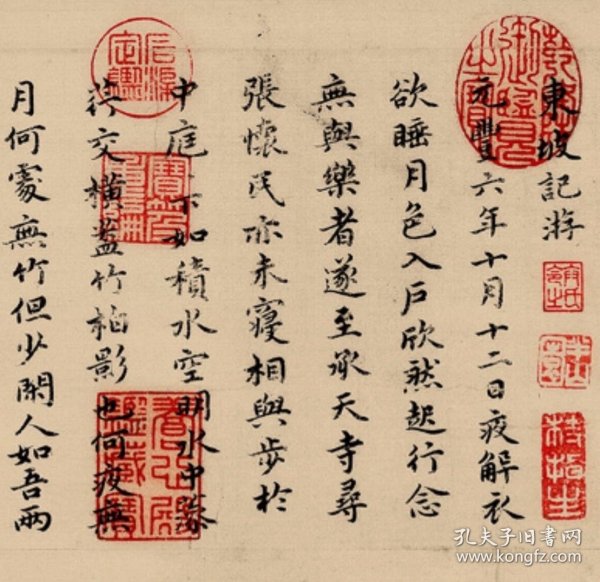 東坡記游
元豐六年十月十二日夜解衣
欲睡月色入戶欣然起行念
無與樂者遂至承天寺尋
張懷民亦未寢相與步於
中庭〻下如積水空明水中藻
荇交橫蓋竹柏影也何夜無
月何處無竹但少閑人如吾兩
乾隆御覽之寶
石渠定鑑
寶笈重編
孔夫子旧书网
www.kongfz.com